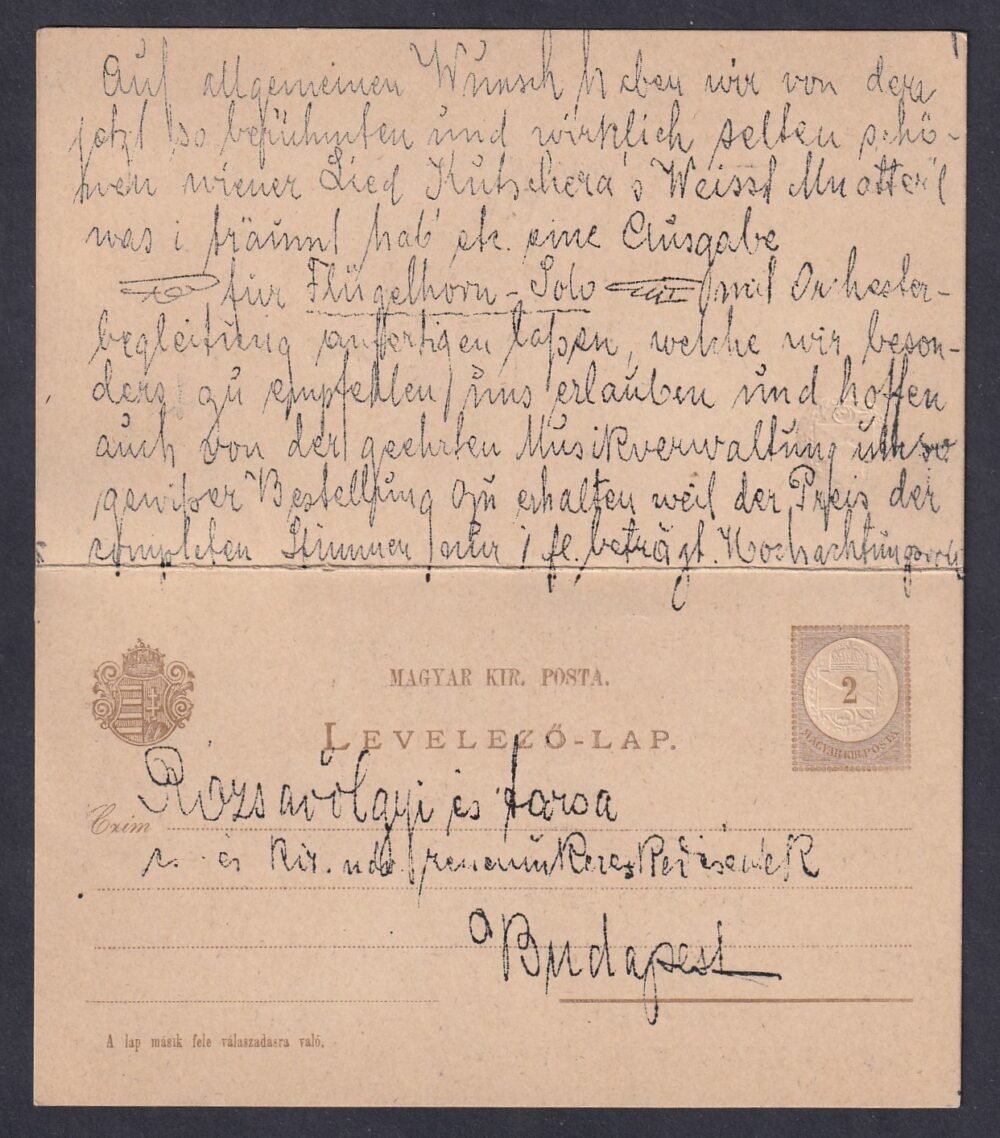 Auf allgemeinen Wunsch haben wir von dem
jetzt so berühmten und wirklich selten schö-
nen wiener Lied Kutschera's Weisst Muatterl
was i träumt hab' etc. eine Ausgabe
für Flügelhorn-Solo mit Orchester-
begleitung anfertigen laßen, welche wir beson-
ders zu empfehlen uns erlauben und hoffen
auch von der geehrten Musikverwaltung umso
gewißer Bestellung zu erhalten weil der Preis der
completen Stimmen nur 1 fl. beträgt. Hochachtungsvoll
MAGYAR KIR. POSTA.
LEVELEZŐ-LAP.
2
MAGYAR KIR. POSTA
Czim
Rózsavölgyi és társa
cs. és kir. udv. zeneműkereskedésének
Budapest
A lap másik fele válaszadásra való.